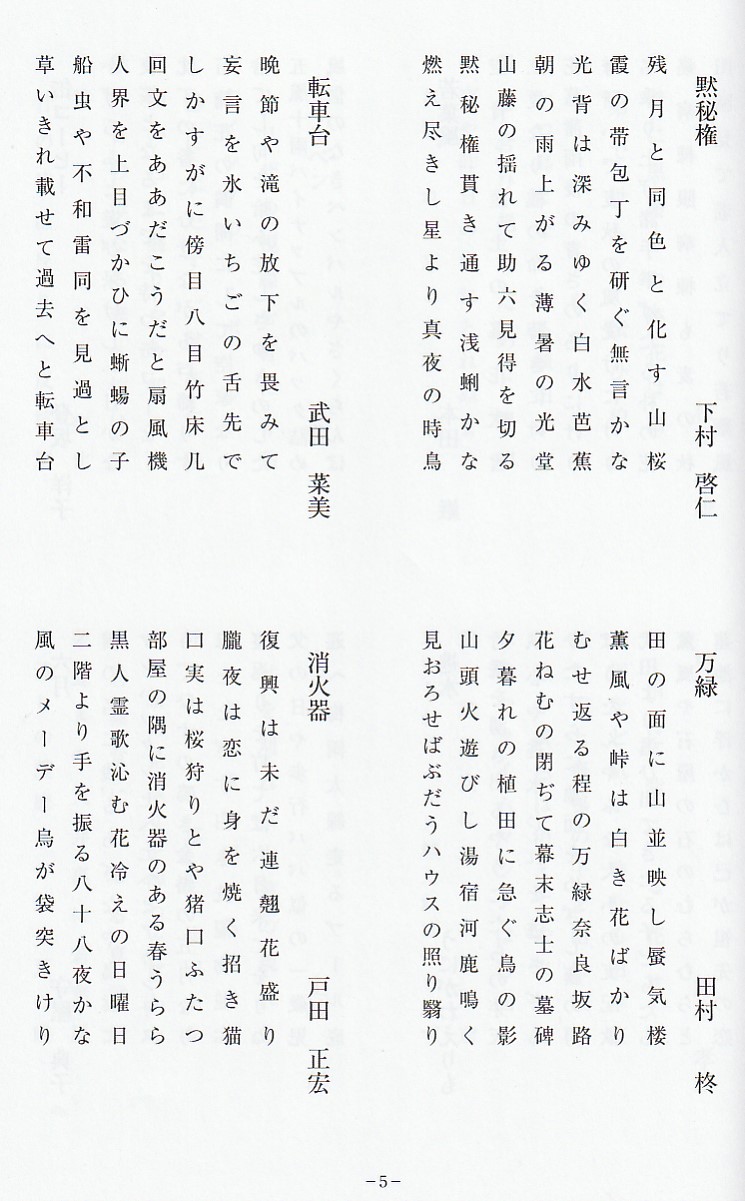 黙秘権
下村 啓仁
残月と同色と化す山桜
霞の帯包丁を研ぐ無言かな
光背は深みゆく白水芭蕉
朝の雨上がる薄暑の光堂
山藤の揺れて助六見得を切る
黙秘権貫き通す浅蜊かな
燃え尽きし星より真夜の時鳥
転車台
武田 菜美
晩節や滝の放下を畏みて
妄言を氷いちごの舌先で
しかすがに傍目八目竹床几
回文をああだこうだと扇風機
人界を上目づかひに蜥蜴の子
船虫や不和雷同を見過とし
草いきれ載せて過去へと転車台
万緑
田村 柊
田の面に山並映し蜃気楼
薫風や峠は白き花ばかり
むせ返る程の万緑奈良坂路
花ねむの閉ぢて幕末志士の墓碑
夕暮れの植田に急ぐ鳥の影
山頭火遊びし湯宿河鹿鳴く
見おろせばぶだうハウスの照り翳り
消火器
戸田 正宏
復興は未だ連翹花盛り
朧夜は恋に身を焼く招き猫
口実は桜狩りとや猪口ふたつ
部屋の隅に消火器のある春うらら
黒人霊歌沁む花冷えの日曜日
二階より手を振る八十八夜かな
風のメーデー烏が袋突きけり
-5-